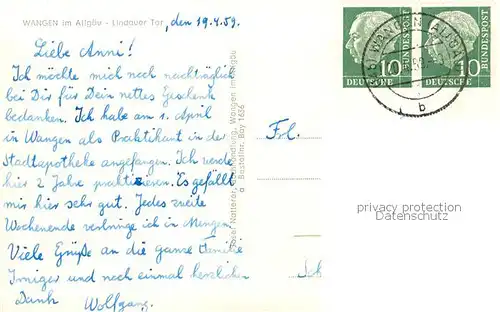 WANGEN im Allgäu - Lindauer Tor
, den 19.4.59.
Liebe Anni!
Ich möchte mich noch nachträglich
bei Dir für Dein nettes Geschenk
bedanken. Ich habe am 1. April
in Wangen als Praktikant in der
Stadtapotheke angefangen. Ich werde
hier 2 Jahre praktizieren. Es gefällt
mir hier sehr gut. Jedes zweite
Wochenende verbringe ich in Mengen.
Viele Grüße an die ganze Familie
Irniger und noch einmal herzlichen
Dank Wolfgang.
Josef Natterer, Buchhandlung, Wangen im Allgäu
Bestellnr. Bay 1636
Frl.
DEUTSCHE BUNDESPOST
10
DEUTSCHE BUNDESPOST
10
WANGEN (ALLGÄU)
b
privacy protection
Datenschutz